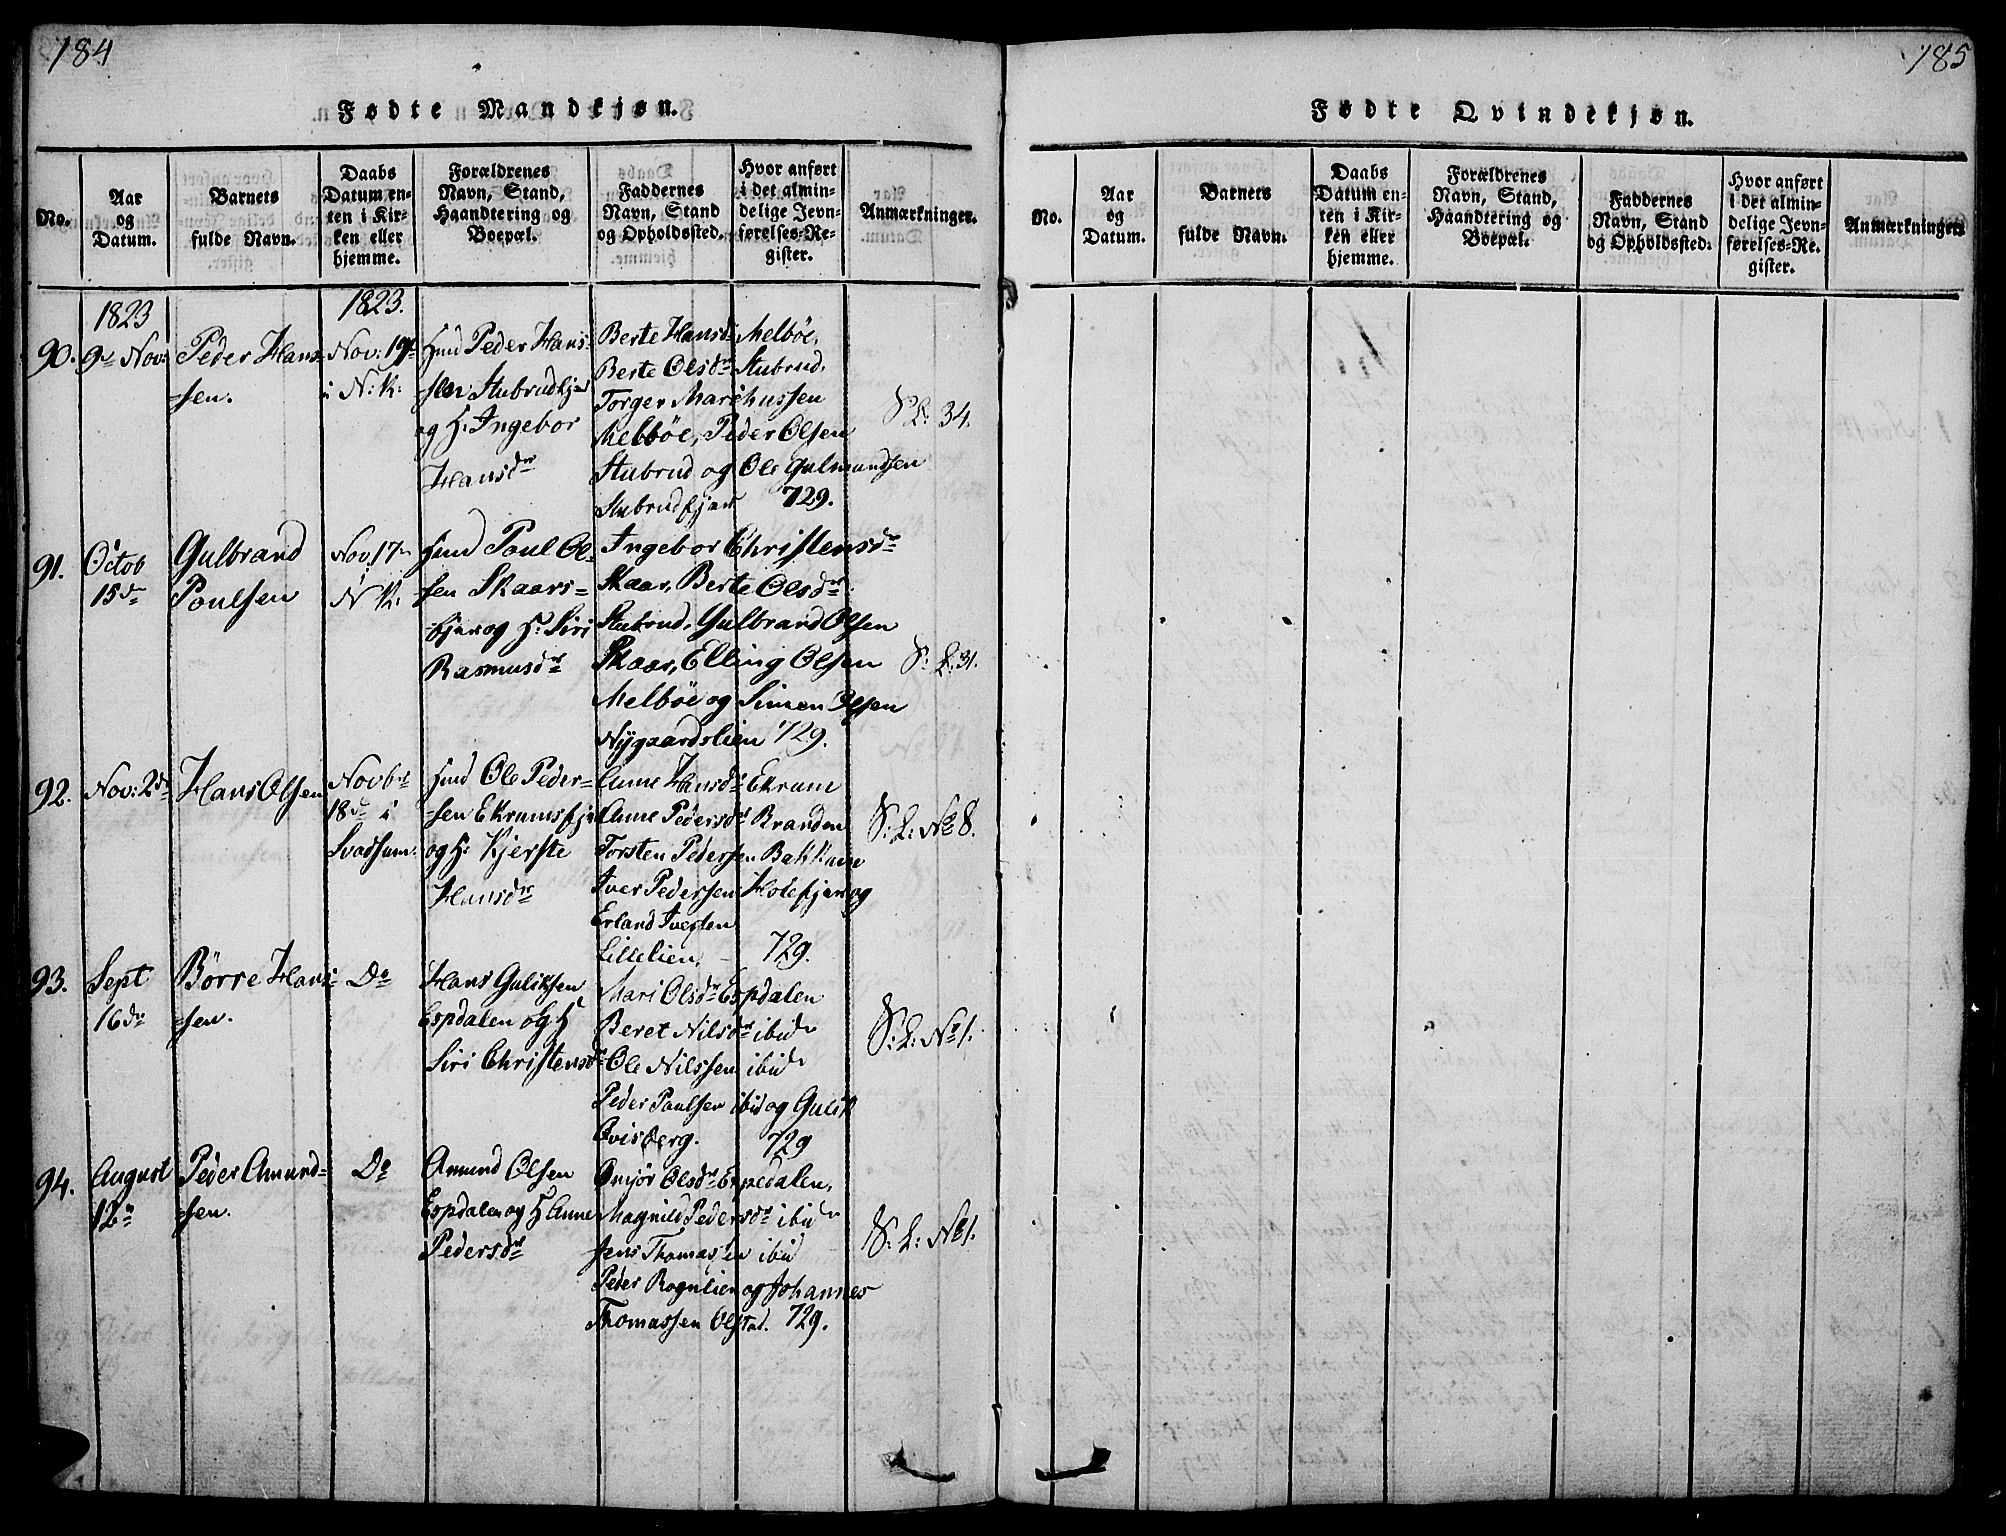 184
Fødte Mandkjøn.
No.
Aar
og
Datum.
Barnets
fulde Navn.
Daabs
Datum en-
ten i Kir-
ken eller
hjemme.
Forældrenes
Navn, Stand,
Haandtering og
Boepæl.
Faddernes
Navn, Stand
og Opholdssted.
Hvor anført
i det almin-
delige Jevn-
førelses-Re-
gister.
Anmærkninger.
1823
1823.
90.
9de Nov:
Peder Han-
sen.
Nov: 19de
i N: K:
Peder Han-
sen Stubrudkjer
og H: Ingebor
Hansdr
Berte Hansdr Melbøe,
Berte Olsdr Stubrud.
Torger Marchussen
Melbøe, Peder Olsen
Stubrud og Ole Gulmundsen
Stubrudkjer 729.
S L: 34.
91.
Octob
15de
Gulbrand
Poulsen
Nov: 17de
N: K:
Poul Ol-
sen Skaars-
kjer og H: Siri
Rasmusdr
Ingebor Christensdr
Skaar, Berte Olsdr
Stubrud, Gulbrand Olsen
Skaar, Elling Olsen
Melbøe og Simen Olsen
Nygaardslien 729.
S: L: 31.
92.
Nov: 2de
Hans Olsen
Novbr
18de i
Svadsum.
Ole Peder-
sen Ekrumskjer
og H: Kjerste
Hansdr
Anne Hansdr Ekrum
Anne Pedersdr Branden
Torsten Pedersen Bakkum
Iver Pedersen Holekjer og
Erland Iversen
Lillelien, 729.
S: L: No 8.
93.
Sept
16de
Børre Han-
sen.
Do
Hans Guliksen
Espdalen og H
Siri Christensdr
Mari Olsdr Espdalen
Beret Nilsdr ibid
Ole Nilssen ibid
Peder Poulsen ibid og Gulik
Qvisberg. 729
S: L: No 1.
94.
August
12de
Peder Amund-
sen.
Do
Amund Olsen
Espdalen og H Anne
Pedersdr
Olsdr Espedalen,
Magnild Pedersdr ibid
Jens Thomassen ibid
Peder Rognlien og Johannes
Thomassen Olstad. 729.
S: L: No 1.
185
Fødte Qvindekjøn.
No.
Aar
og
Datum.
Barnets
fulde Navn.
Daabs
Datum en-
ten i Kir-
ken eller
hjemme.
Forældrenes
Navn, Stand,
Haandtering og
Boepæl.
Faddernes
Navn, Stand
og Opholdssted.
Hvor anført
i det almin-
delige Jevn-
førelses-Re-
gister.
Anmærkninger.